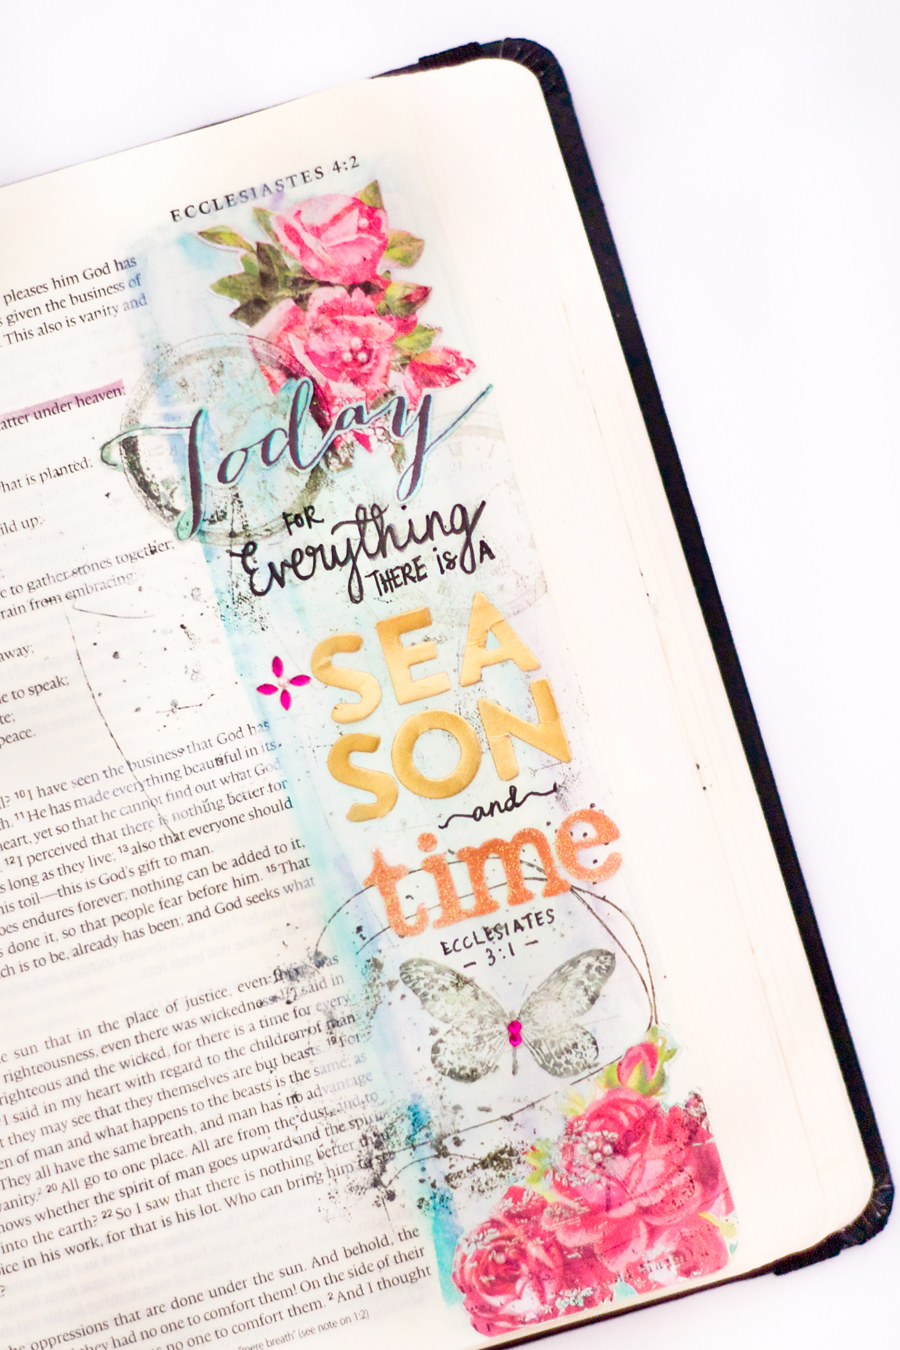 ECCLESIASTES 4:2
pleases him God has
given the business of
This also is vanity and
atter under heaven:
hat is planted;
ild up;
e to gather stones together;
rain from embracing;
away;
e to speak;
te;
peace.
¹⁰I have seen the business that God has
h. ¹¹He has made everything beautiful in its
heart, yet so that he cannot find out what God
¹²I perceived that there is nothing better for
s long as they live; ¹³also that everyone should
his toil—this is God's gift to man.
oes endures forever; nothing can be added to it,
s done it, so that people fear before him. ¹⁵That
ch is to be, already has been; and God seeks what
e sun that in the place of justice, even there was
righteousness, even there was wickedness. ¹⁷I said in
righteous and the wicked, for there is a time for every
I said in my heart with regard to the children of man
t they may see that they themselves are but beasts. ¹⁹For
en of man and what happens to the beasts is the same; as
They all have the same breath, and man has no advantage
vanity. ²⁰All go to one place. All are from the dust, and to
nows whether the spirit of man goes upward and the spirit
into the earth? ²²So I saw that there is nothing better
ice in his work, for that is his lot. Who can bring him
he oppressions that are done under the sun. And behold, the
they had no one to comfort them! On the side of their
s no one to comfort them. ²And I thought
"mere breath" (see note on 1:2)
Today
FOR
Everything
THERE is A
SEA
SON
and
time
ECCLESIATES
- 3:1 -